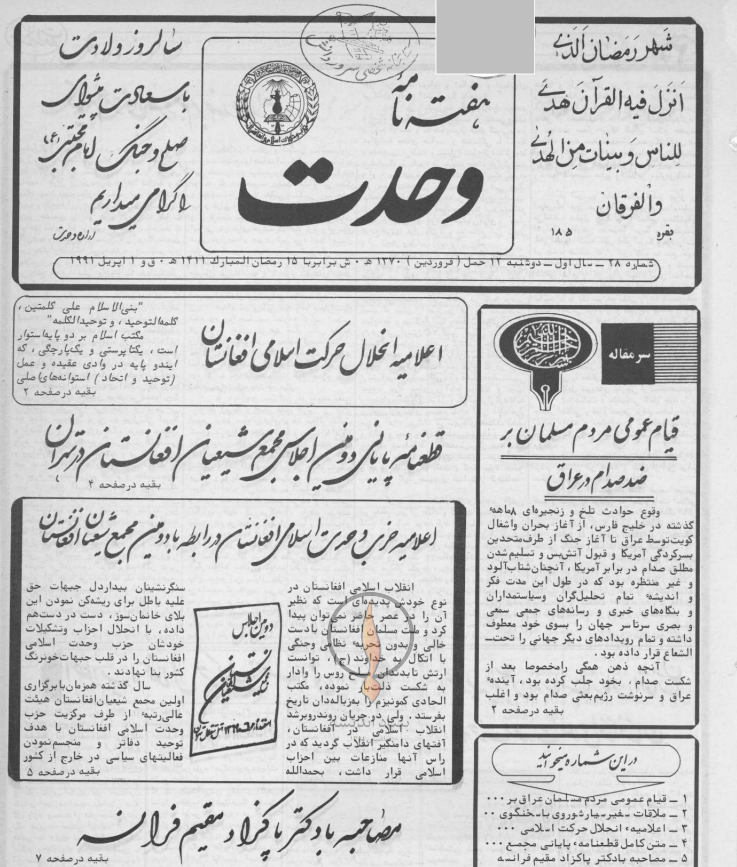 شهر رمضان الذی
انزل فیه القرآن هدی
للناس و بینات من الهدی
والفرقان
بقره ۱۸۵
هفته نامه
وحدت
سالروز ولادت
باسعادت پیشوای
صلح و جنگ امام مجتبی (ع)
را گرامی میداریم
اداره وحدت
شماره ۲۸ ــ سال اول ــ دوشنبه ۱۲ حمل ( فروردین ) ۱۳۷۰ ه‍ ۰ ش برابر با ۱۵ رمضان المبارک ۱۴۱۱ ه‍ ۰ ق و ۱ اپریل ۱۹۹۱
سر مقاله
قیام عمومی مردم مسلمان بر
ضد صدام در عراق
وقوع حوادث تلخ و زنجیره‌ای ۸ماهه
گذشته در خلیج فارس، از آغاز بحران واشغال
کویت‌توسط عراق تا آغاز جنگ از طرف‌متحدین
بسرکردگی آمریکا و قبول آتش‌بس و تسلیم‌شدن
مطلق صدام در برابر آمریکا ، آنچنان‌شتاب‌آلود
و غیر منتظره بود که در طول این مدت فکر
و اندیشهٔ تمام تحلیل‌گران وسیاستمداران
و بنگاه‌های خبری و رسانه‌های جمعی سمعی
و بصری سرتاسر جهان را بسوی خود معطوف
داشته و تمام رویدادهای دیگر جهانی را تحت‌ــ
الشعاع قرار داده بود .
آنچه ذهن همگی رامخصوصا بعد از
شکست صدام ، بخود جلب کرده بود ، آیندهٔ
عراق و سرنوشت رژیم‌بعثی صدام بود و اغلب
بقیه درصفحه ۲
در این شماره میخوانید
۱ ــ قیام عمومی مردم مسلمان عراق بر ۰۰۰
۲ ــ ملاقات سفیرسیارشوروی باسخنگوی ۰۰
۳ ــ اعلامیهٔ انحلال حرکت اسلامی ۰۰۰
۴ ــ متن کامل قطعنامهٔ پایانی مجمع ۰۰۰
۵ ــ مصاحبه بادکتر پاکزاد مقیم فرانسه
اعلامیه انحلال حرکت اسلامی افغانستان
"بنی‌الاسلام علی کلمتین ،
کلمه‌التوحید ، و توحیدالکلمه"
مکتب اسلام بر دو پایه‌استوار
است ، یکتاپرستی و یکپارچگی ، که
ایندو پایه در وادی عقیده و عمل
(توحید و اتحاد) استوانه‌های‌اصلی
بقیه درصفحه ۲
قطعنامه پایانی دومین اجلاس مجمع شیعیان افغانستان در تهران
بقیه درصفحه ۴
اعلامیه حزب وحدت اسلامی افغانستان در رابطه با دومین مجمع شیعیان افغانستان
انقلاب اسلامی افغانستان در
نوع خودش پدیده‌ای است که نظیر
آن را در عصر حاضر نمی‌توان پیدا
کرد و ملت مسلمان افغانستان بادست
خالی و بدون تجربهٔ نظامی وجنگی
با اتکال به خداوند (ج) ، توانست
ارتش تابدندان روس را وادار
به شکست ذلت‌بار نموده، مکتب
الحادی کمونیزم را به‌زباله‌دان تاریخ
بفرستد . ولی در جریان روندروبرشد
انقلاب اسلامی در افغانستان،
آفتهای دامنگیر انقلاب گردید که در
راس آنها منازعات بین احزاب
اسلامی قرار داشت ، بحمدالله
دومین اجلاس
سنگرنشینان بیداردل جبهات حق
علیه باطل برای ریشه‌کن نمودن این
بلای خانمان‌سوز ، دست در دست‌هم
داده ، با انحلال احزاب وتشکیلات
خودشان حزب وحدت اسلامی
افغانستان را در قلب جبهات‌خونرنگ
کشور بنا نهادند .
سال گذشته همزمان‌بابرگزاری
اولین مجمع شیعیان‌افغانستان هیئت
عالی‌رتبهٔ از طرف مرکزیت حزب
وحدت اسلامی افغانستان با هدف
توحید دفاتر و منجسم‌نمودن
فعالیتهای سیاسی در خارج از کشور
بقیه درصفحه ۵
مصاحبه با دکتر پاکزاد مقیم فرانسه
بقیه درصفحه ۷